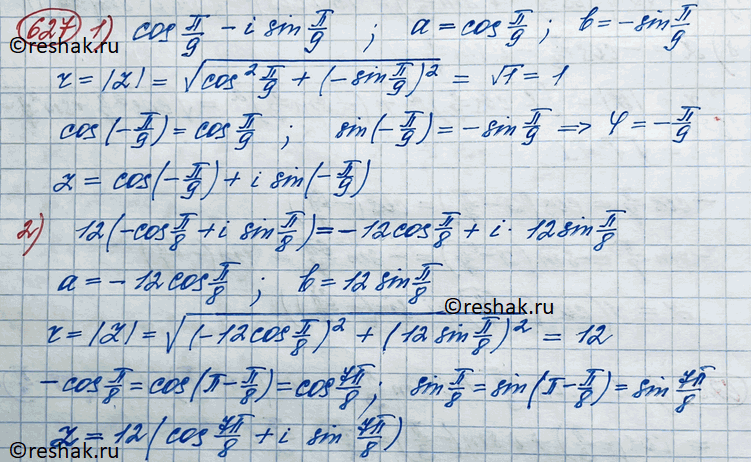 627 1) cos π/9 − i sin π/9 ; a = cos π/9 ; b = −sin π/9
r = |z| = √(cos² π/9 + (−sin π/9)²) = √1 = 1
cos(−π/9) = cos π/9 ; sin(−π/9) = −sin π/9 ⇒ φ = −π/9
z = cos(−π/9) + i sin(−π/9)
2) 12(−cos π/8 + i sin π/8) = −12cos π/8 + i · 12sin π/8
a = −12cos π/8 ; b = 12 sin π/8
©reshak.ru
r = |z| = √((−12cos π/8)² + (12 sin π/8)²) = 12
−cos π/8 = cos(π − π/8) = cos 7π/8 ; sin π/8 = sin(π − π/8) = sin 7π/8
z = 12(cos 7π/8 + i sin 7π/8)
©reshak.ru
©reshak.ru
©reshak.ru
©reshak.ru